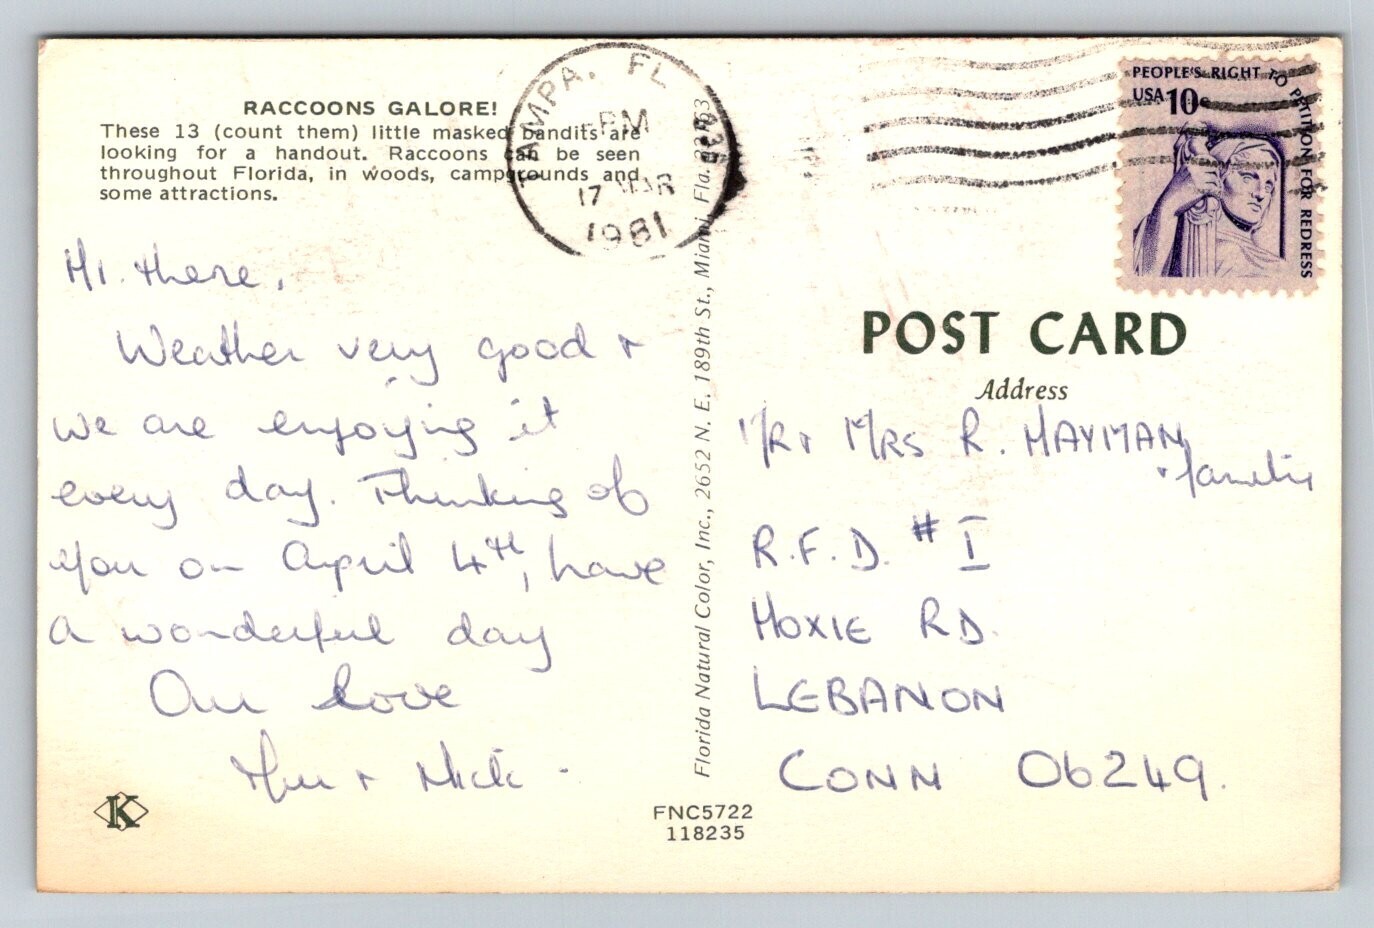 RACCOONS GALORE!
These 13 (count them) little masked bandits are
looking for a handout. Raccoons can be seen
throughout Florida, in woods, campgrounds and
some attractions.
TAMPA, FL
PM
17 MAR
1981
PEOPLE'S RIGHT TO PETITION FOR REDRESS
USA 10c
Hi there,
Weather very good +
we are enjoying it
every day. Thinking of
you on April 4th, have
a wonderful day
Our love
+ Nick
K
Florida Natural Color, Inc., 2652 N. E. 189th St., Miami, Fla.
FNC5722
118235
POST CARD
Address
MR + MRS R. HAYMAN
+ family
R.F.D. # I
HOXIE RD.
LEBANON
CONN 06249.